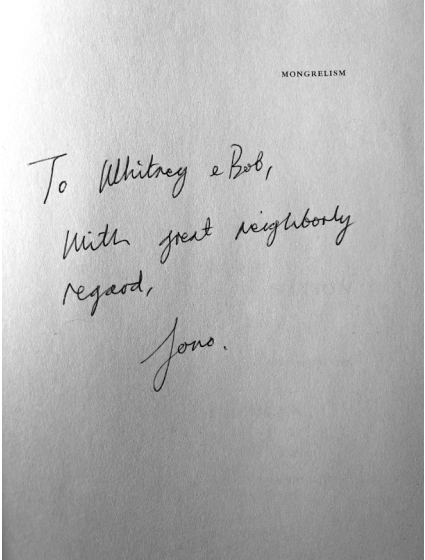 MONGRELISM
To Whitney e Bob,
With great neighborly
regard,
Jono.